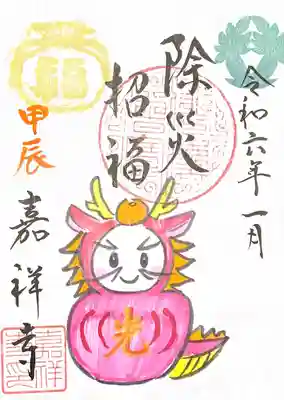 令和六年一月
除災
招福
甲辰
嘉祥寺
光
嘉祥